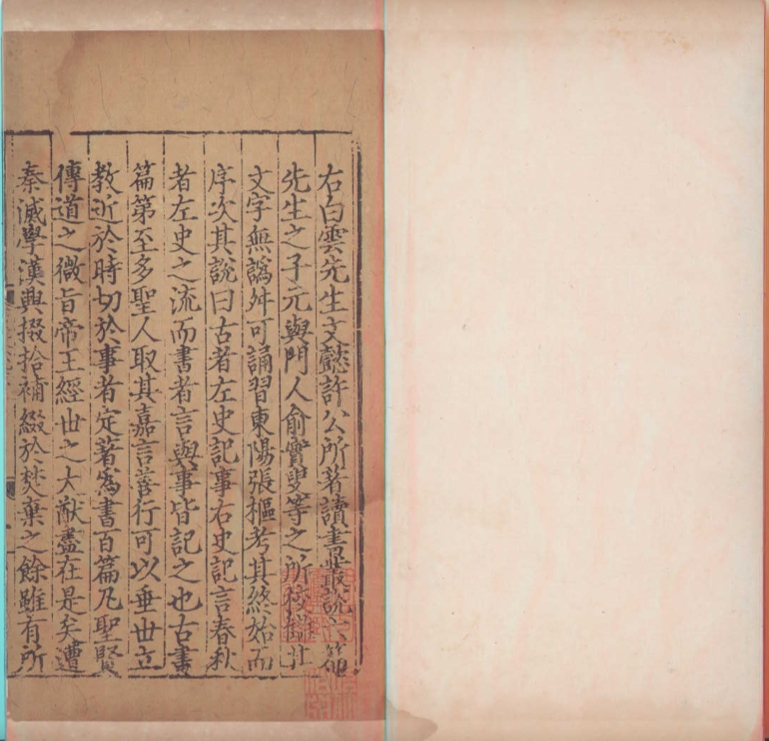 右白雲先生文懿許公所著讀書叢說六
先生之子元與門人俞實叟等之所校讎
文字無譌舛可誦習東陽張樞考其終始而
序次其說曰古者左史記事右史記言春秋
者左史之流而書者言與事皆記之也古書
篇第至多聖人取其嘉言善行可以垂世立
教近於時切於事者定著爲書百篇凡聖賢
傳道之微旨帝王經世之大猷盡在是矣遭
秦滅學漢興掇拾補綴於焚棄之餘雖有所